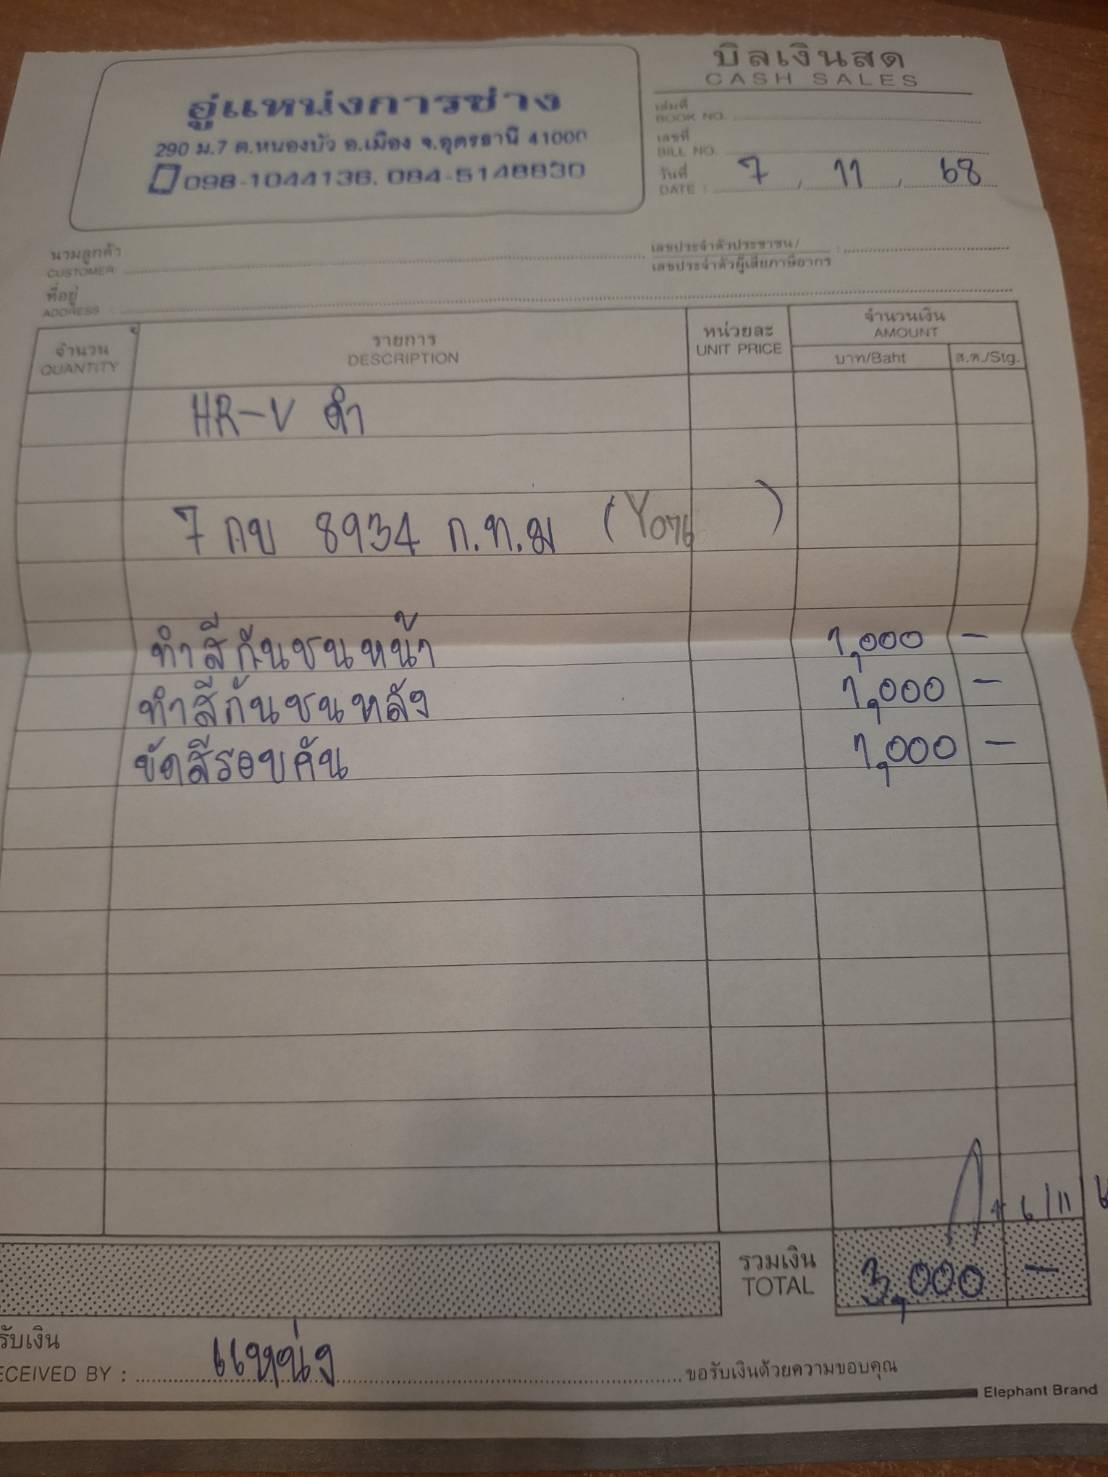 บิลเงินสด
CASH SALES
อู่แหน่งการช่าง
290 ม.7 ต.หนองบัว อ.เมือง จ.อุดรธานี 41000
098-1044136, 084-5148830
เล่มที่
BOOK NO.
เลขที่
BILL NO.
วันที่
DATE : 7 , 11 , 68
นามลูกค้า
CUSTOMER
เลขประจำตัวประชาชน/ :
เลขประจำตัวผู้เสียภาษีอากร
ที่อยู่
ADDRESS :
จำนวน
QUANTITY
รายการ
DESCRIPTION
หน่วยละ
UNIT PRICE
จำนวนเงิน
AMOUNT
บาท/Baht ส.ต./Stg.
HR-V ดำ
7 กข 8934 ก.ท.ม ( )
ทำสีกันชนหน้า 1,000 -
ทำสีกันชนหลัง 1,000 -
ขัดสีรอบคัน 1,000 -
6/11
รวมเงิน
TOTAL 3,000 -
รับเงิน
ECEIVED BY : แหน่ง
ขอรับเงินด้วยความขอบคุณ
Elephant Brand